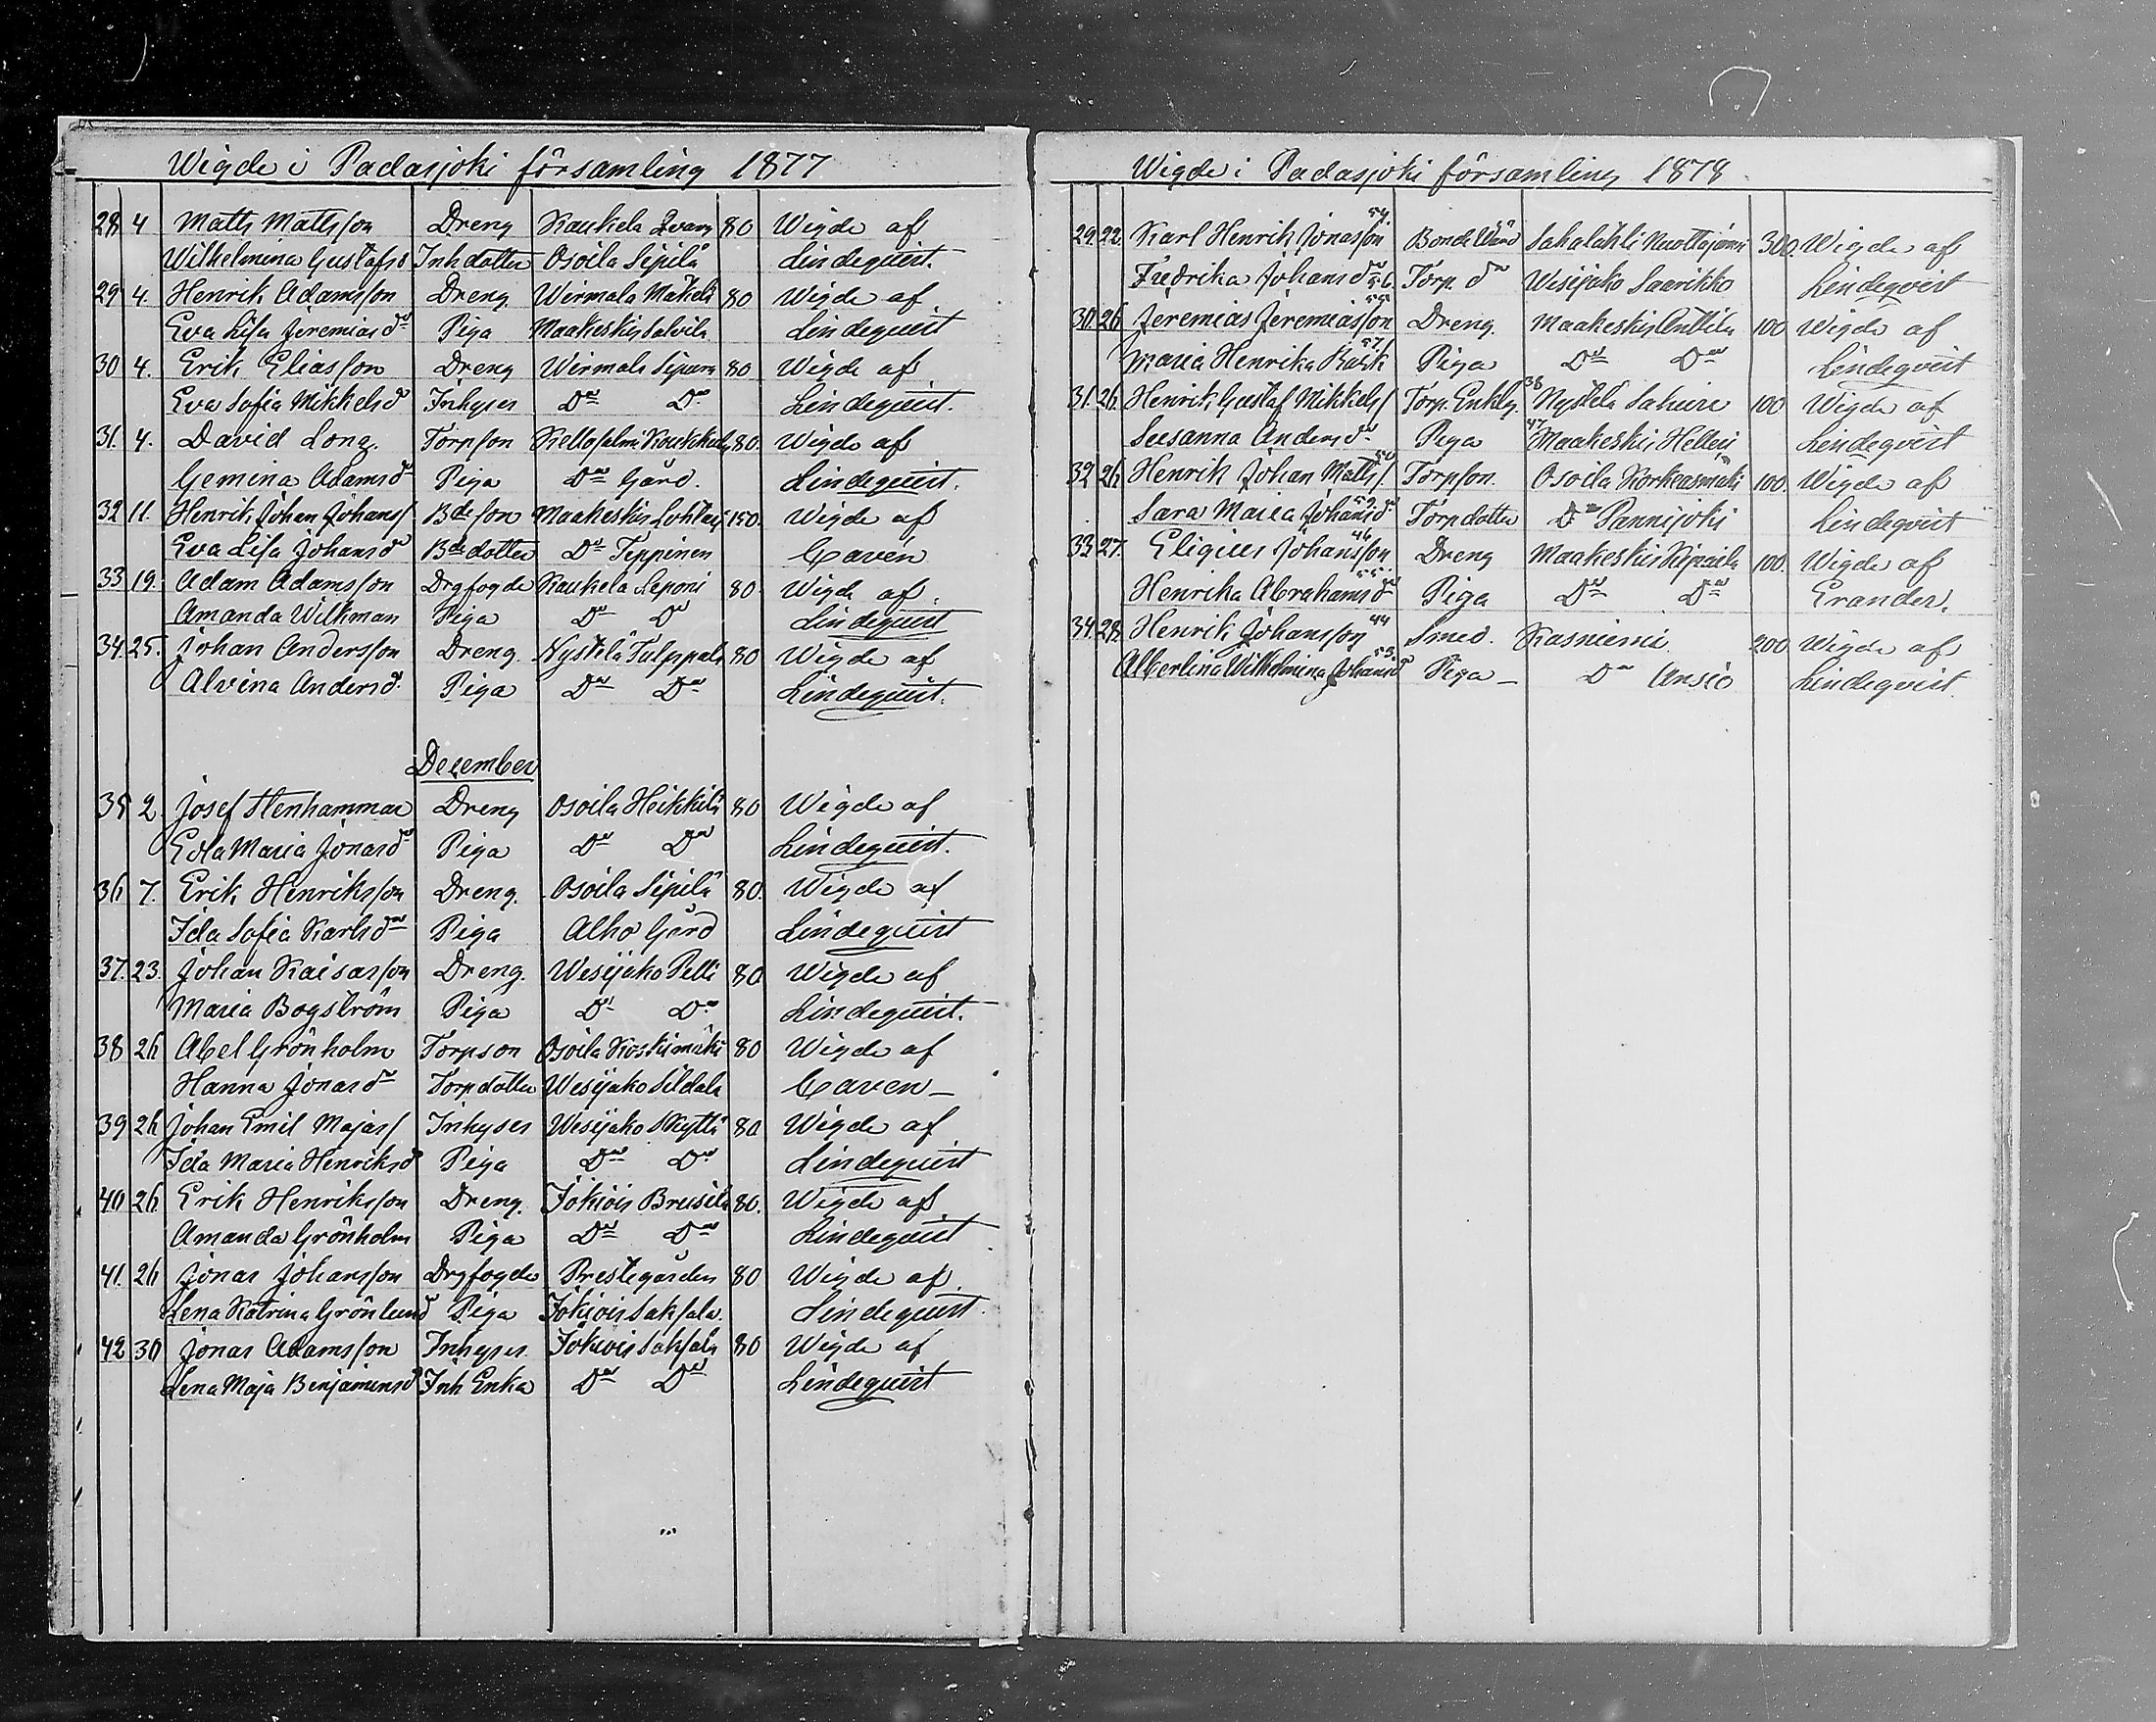 Wigde i Padasjoki församling 1877
28 4 Matts Mattsson Dreng Kaukela Qvarn 80 Wigde af
Wilhelmina Gustafsd Inh dotter Osoila Sipilä Lindeqvist.
29 4. Henrik Adamsson Dreng Wirmala Mäkelä 80 Wigde af
Eva Lisa Jeremiasdr Piga Maakeskis Lindeqvist
30 4. Erik Eliasson Dreng Wirmala 80 Wigde af
Eva Sofia Mikkelsd Inhyses Do Do Lindeqvist.
31. 4. David Long. Torpson Kellosalmi 80. Wigde af
Gemina Adamsdr Piga Do Gård. Lindeqvist.
32 11. Henrik Johan Johans/ Bdeson Maakeskis 150. Wigde af
Eva Lisa Johansdr Bdedotter Do Teppinen Cavén
33 19. Adam Adamsson Drgfogde Kaukela Leponi 80 Wigde af
Amanda Wilkman Piga Do Do Lindeqvist
34. 25. Johan Andersson Dreng. Nystelä Tulppala 80 Wigde af
Alvina Andersd. Piga Do Do Lindeqvist.
December
35 2. Josef Stenhammar Dreng Osoila Heikkilä 80 Wigde af
Eda Maria Jonasdr Piga Do Do Lindeqvist.
36 7. Erik Henriksson Dreng. Osoila Sipilä 80. Wigde af
Ida Sofia Karlsdr Piga Alho Gård Lindeqvist
37. 23. Johan Kaisasson Dreng. Wesijako Pelli 80 Wigde af
Maria Bogström Piga Do Do Lindeqvist.
38 26 Abel Grönholm Torpson Osoila Koskimäki 80 Wigde af
Hanna Jonasdr Torpdotter Wesijako Sildala Caven
39 26 Johan Emil Majas/ Inhyses Wesijako Skyttä 80 Wigde af
Ida Maria Henriksd Piga Do Do Lindeqvist
40 26 Erik Henriksson Dreng. Jokiois Brusila 80. Wigde af
Amanda Grönholm Piga Do Do Lindeqvist
41. 26 Jonas Johansson Drgfogde Prestegården 80 Wigde af
Lena Katrina Grönlund Piga Jokiois Saksala. Lindeqvist
42 30 Jonas Adamsson Inhyses Jokiois Saksala 80 Wigde af
Lena Maja Benjaminsd Inh Enka Do Do Lindeqvist
Wigde i Padasjoki församling 1878.
29. 22. Karl Henrik Jonasson 54. Bonde Sakalahti Nuottajärvi 300. Wigde af
Fredrika Johansdr 56. Torp. dr Wesijako Saarikko Lindeqvist
30. 26. Jeremias Jeremiasson 55 Dreng. Maakeskis Anttila 100 Wigde af
Maria Henrika Rask 57 Piga Do Do Lindeqvist
31. 26. Henrik Gustaf Mikkels/ Torp. Enkling 38 Nystelä 100 Wigde af
Susanna Andersdr Piga 47 Maakeskis Lindeqvist
32 26 Henrik Johan Matts/ 50 Torpson. Osoila Korkeasmäki 100. Wigde af
Sara Maria Johansdr 59 Torpdotter Do Pannijoki Lindeqvist
33. 27. Eligius Johansson 46 Dreng Maakeskis 100. Wigde af
Henrika Abrahamsdr 55. Piga Do Do Grander.
34. 28. Henrik Johansson 44 Smed. Kasniemi 200 Wigde af
Albertina Wilhelmina Johansd 53. Piga Do Ansio Lindeqvist.